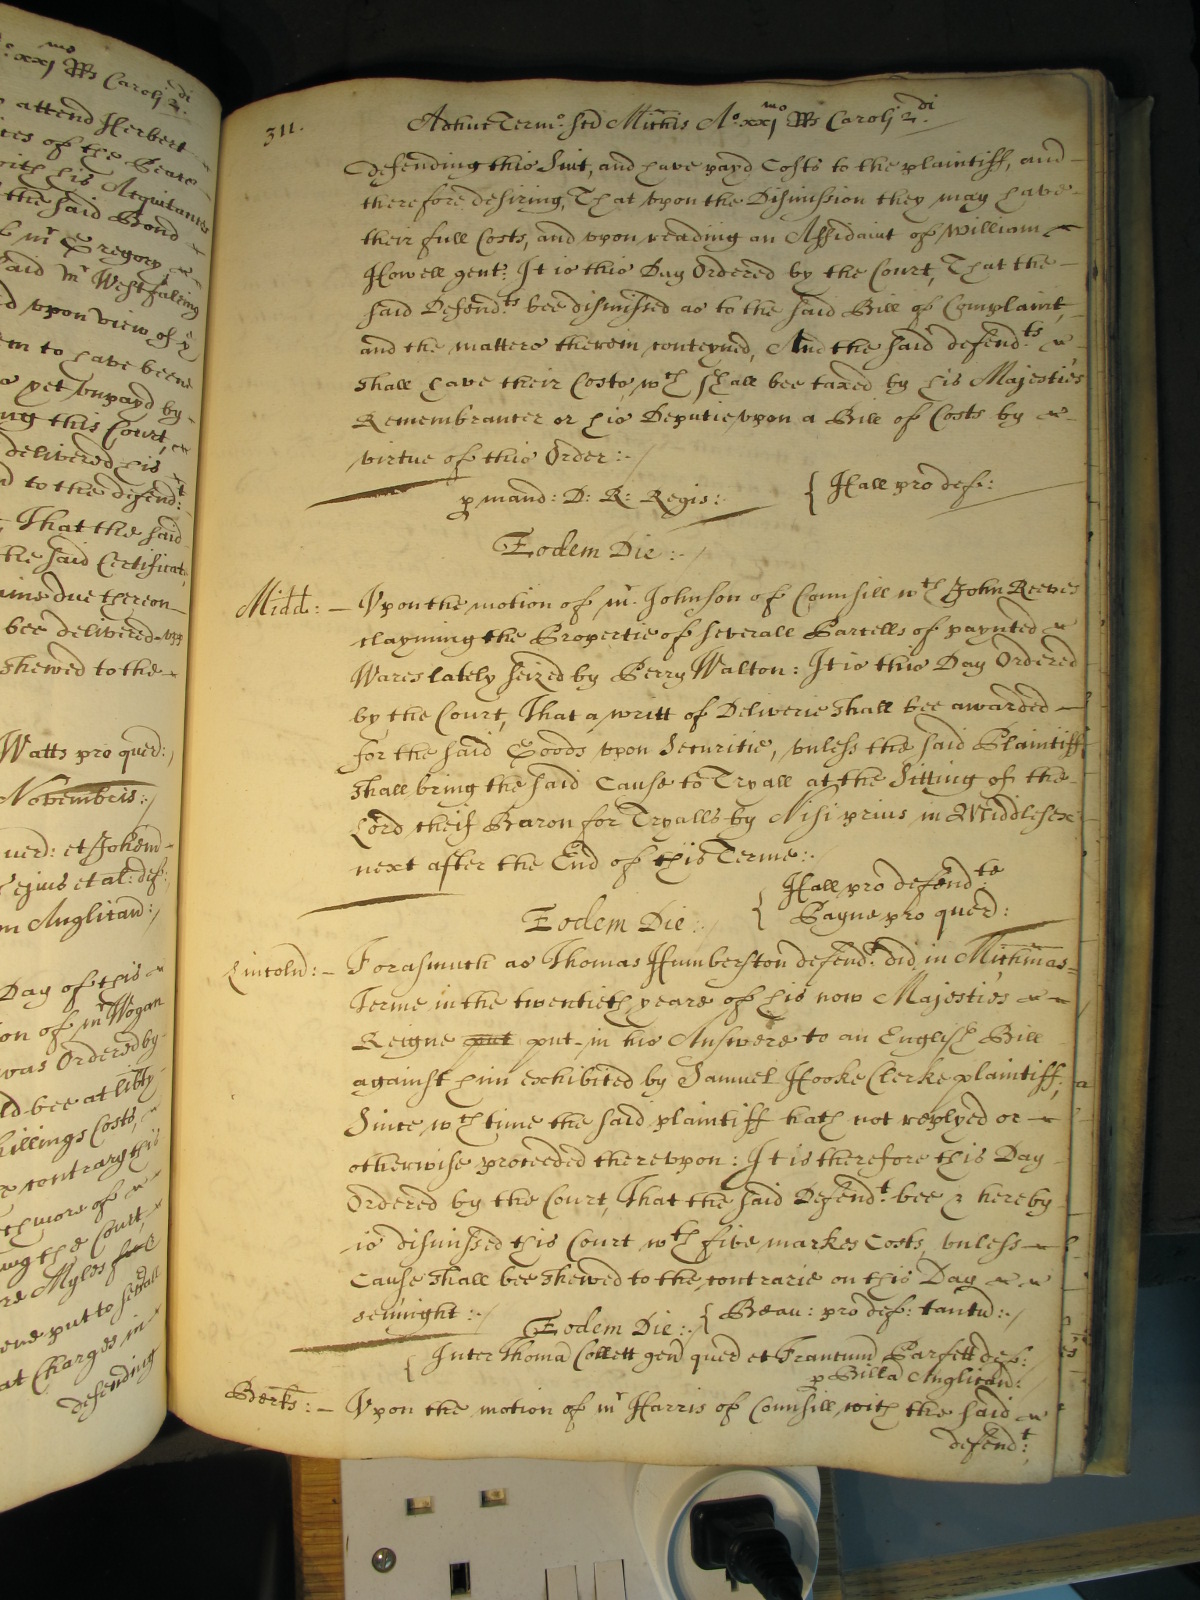 mo
o: xxj RRs Caroli 2di:
attend Herbert
ices of the Peace
with his Acquitance
the said Bond
mr Gregory
said mr Westfaling
d vpon view of ye
em to have beene
yet vnpayd by
ng this Court,
delivered his
d to the defendt:
That the said
the said Certificat
aine due thereon
bee delivered vpp
shewed to the
Watts pro quer:
Novembris:
uer: et Johem
ejus et al: def:
m Anglican:
Day of this
on of mr Wogan
was Ordered by
ld bee at libty
hillings Costs,
contrary this
th more of
ng the Court,
re Mylds
ene put to severall
at Charges in
defending
311. Adhuc Termo: Sci Michis Ao: xxjmo RRs Carolj 2di:
defending this Suit, and have payd Costs to the plaintiff, and
therefore desiring, That vpon the Dismission they may have
their full Costs, and vpon reading an Affidavit of William
Howell gent: It is this Day Ordered by the Court, That the
said Defendts: bee dismissed as to the said Bill of Complaint,
and the matters therein conteyned, And the said defendts:
shall have their Costs, wch shall bee taxed by his Majesties
Remembrancer or his Deputie vpon a Bill of Costs by
virtue of this Order:
p mand: D: R: Regis: { Hall pro def:
Eodem Die:
Midd: Vpon the motion of mr. Johnson of Counsill wth John Reeves
clayming the Propertie of severall Parcells of paynted
Wares lately seized by Perry Walton: It is this Day Ordered
by the Court, That a writt of Deliverie shall bee awarded
for the said Goods vpon Securitie, vnless the said Plaintiff
shall bring the said Cause to Tryall at the Sitting of the
Lord cheif Baron for Tryalls by Nisi prius in Middlesex
next after the End of this Terme:
{ Hall pro defendte:
Eodem Die: Payne pro quer:
Lincoln: Forasmuch as Thomas Humberston defendt: did in Michmas
Terme in the twentieth yeare of his now Majesties
Reigne put put in his Answere to an English Bill
against him exhibited by Samuel Hooke Clerke plaintiff,
Since wch time the said plaintiff hath not replyed or
otherwise proceeded therevpon: It is therefore this Day
Ordered by the Court, That the said Defendt: bee & hereby
is dismissed this Court wth five markes Costs, vnless
Cause shall bee shewed to the contrarie on this Day
sennight: { Beau: pro def: tantu:
Eodem Die:
{ Inter Thoma Collett gen quer et Francum Parfett def:
p Billa Anglican:
Berks: Vpon the motion of mr Harris of Counsill, with the said
defendt: